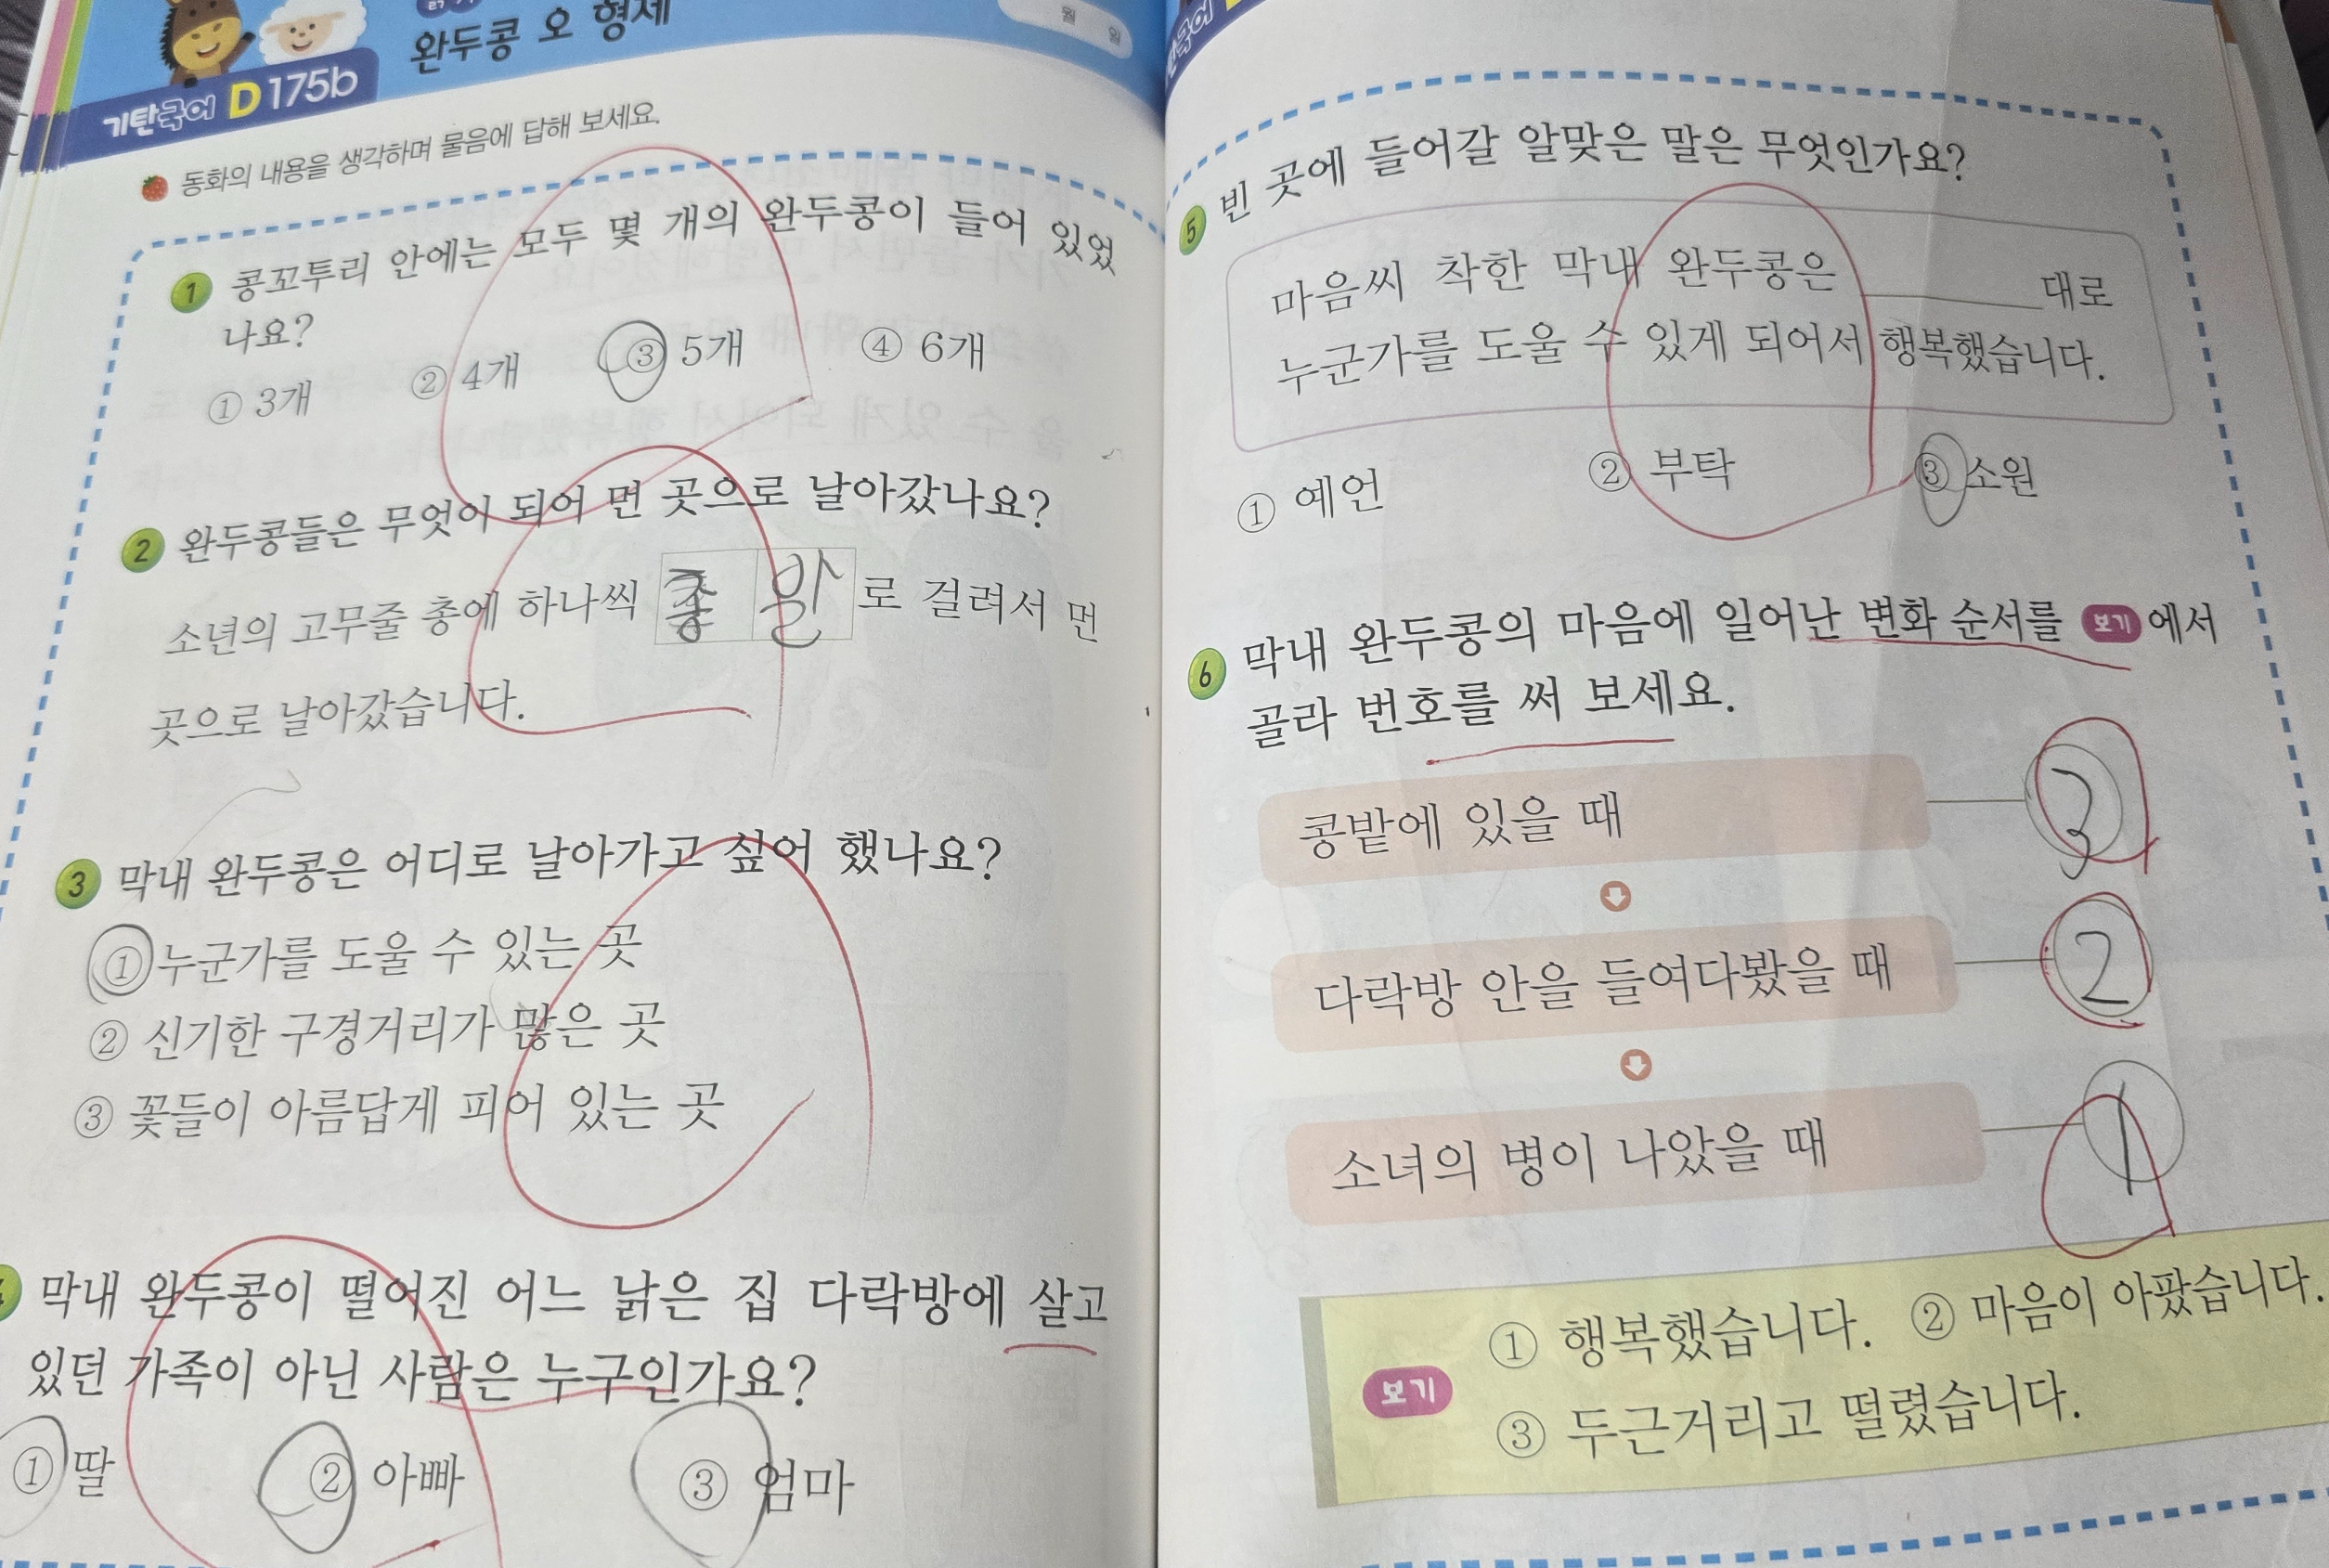 완두콩 오 형제
월 일
기탄국어 D175b
동화의 내용을 생각하며 물음에 답해 보세요.
1 콩꼬투리 안에는 모두 몇 개의 완두콩이 들어 있었
나요?
① 3개 ② 4개 ③ 5개 ④ 6개
2 완두콩들은 무엇이 되어 먼 곳으로 날아갔나요?
소년의 고무줄 총에 하나씩 총 알 로 걸려서 먼
곳으로 날아갔습니다.
3 막내 완두콩은 어디로 날아가고 싶어 했나요?
① 누군가를 도울 수 있는 곳
② 신기한 구경거리가 많은 곳
③ 꽃들이 아름답게 피어 있는 곳
막내 완두콩이 떨어진 어느 낡은 집 다락방에 살고
있던 가족이 아닌 사람은 누구인가요?
① 딸 ② 아빠 ③ 엄마
5 빈 곳에 들어갈 알맞은 말은 무엇인가요?
마음씨 착한 막내 완두콩은 ______ 대로
누군가를 도울 수 있게 되어서 행복했습니다.
① 예언 ② 부탁 ③ 소원
6 막내 완두콩의 마음에 일어난 변화 순서를 보기 에서
골라 번호를 써 보세요.
콩밭에 있을 때 3
다락방 안을 들여다봤을 때 2
소녀의 병이 나았을 때 1
보기
① 행복했습니다. ② 마음이 아팠습니다.
③ 두근거리고 떨렸습니다.